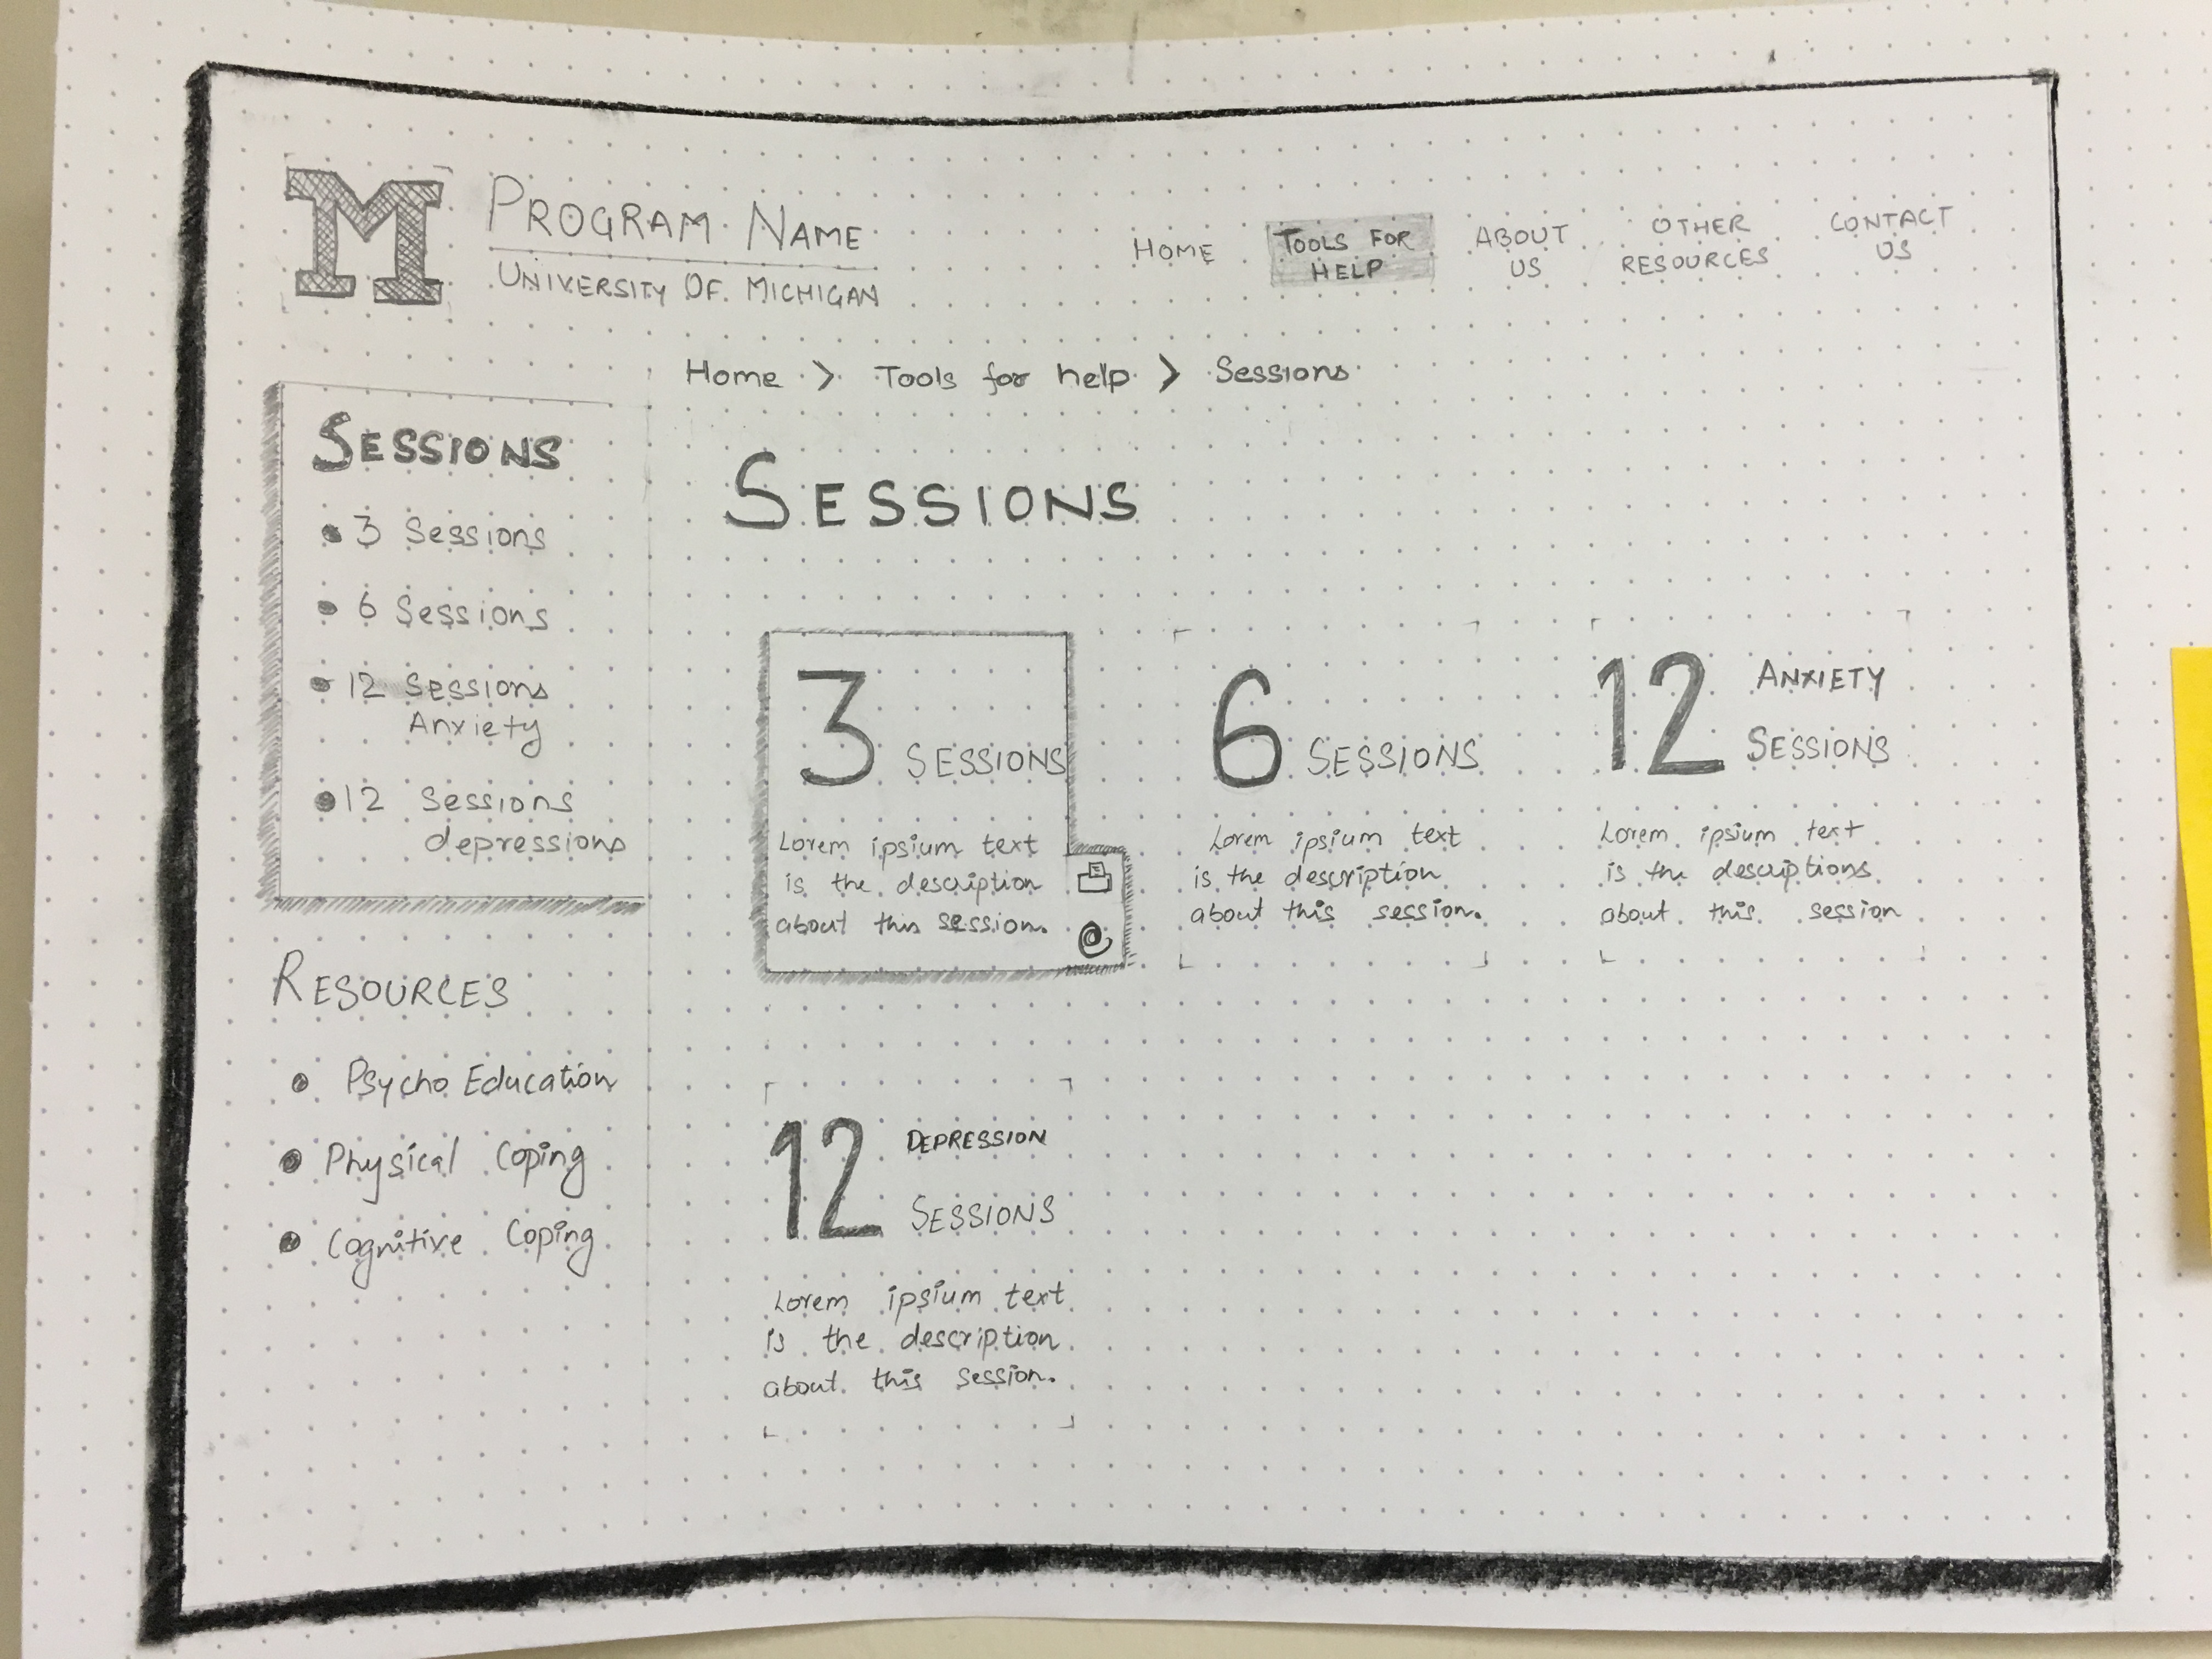 M
PROGRAM NAME
UNIVERSITY OF MICHIGAN
HOME
TOOLS FOR
HELP
ABOUT
US
OTHER
RESOURCES
CONTACT
US
Home > Tools for help > Sessions
SESSIONS
• 3 Sessions
• 6 Sessions
• 12 Sessions
Anxiety
• 12 Sessions
depressions
RESOURCES
• Psycho Education
• Physical Coping
• Cognitive Coping
SESSIONS
3 SESSIONS
Lorem ipsium text
is the description
about this session.
@
6 SESSIONS
Lorem ipsium text
is the description
about this session.
12 ANXIETY
SESSIONS
Lorem ipsium text
is the descriptions
about this session
12 DEPRESSION
SESSIONS
Lorem ipsium text
is the description
about this session.